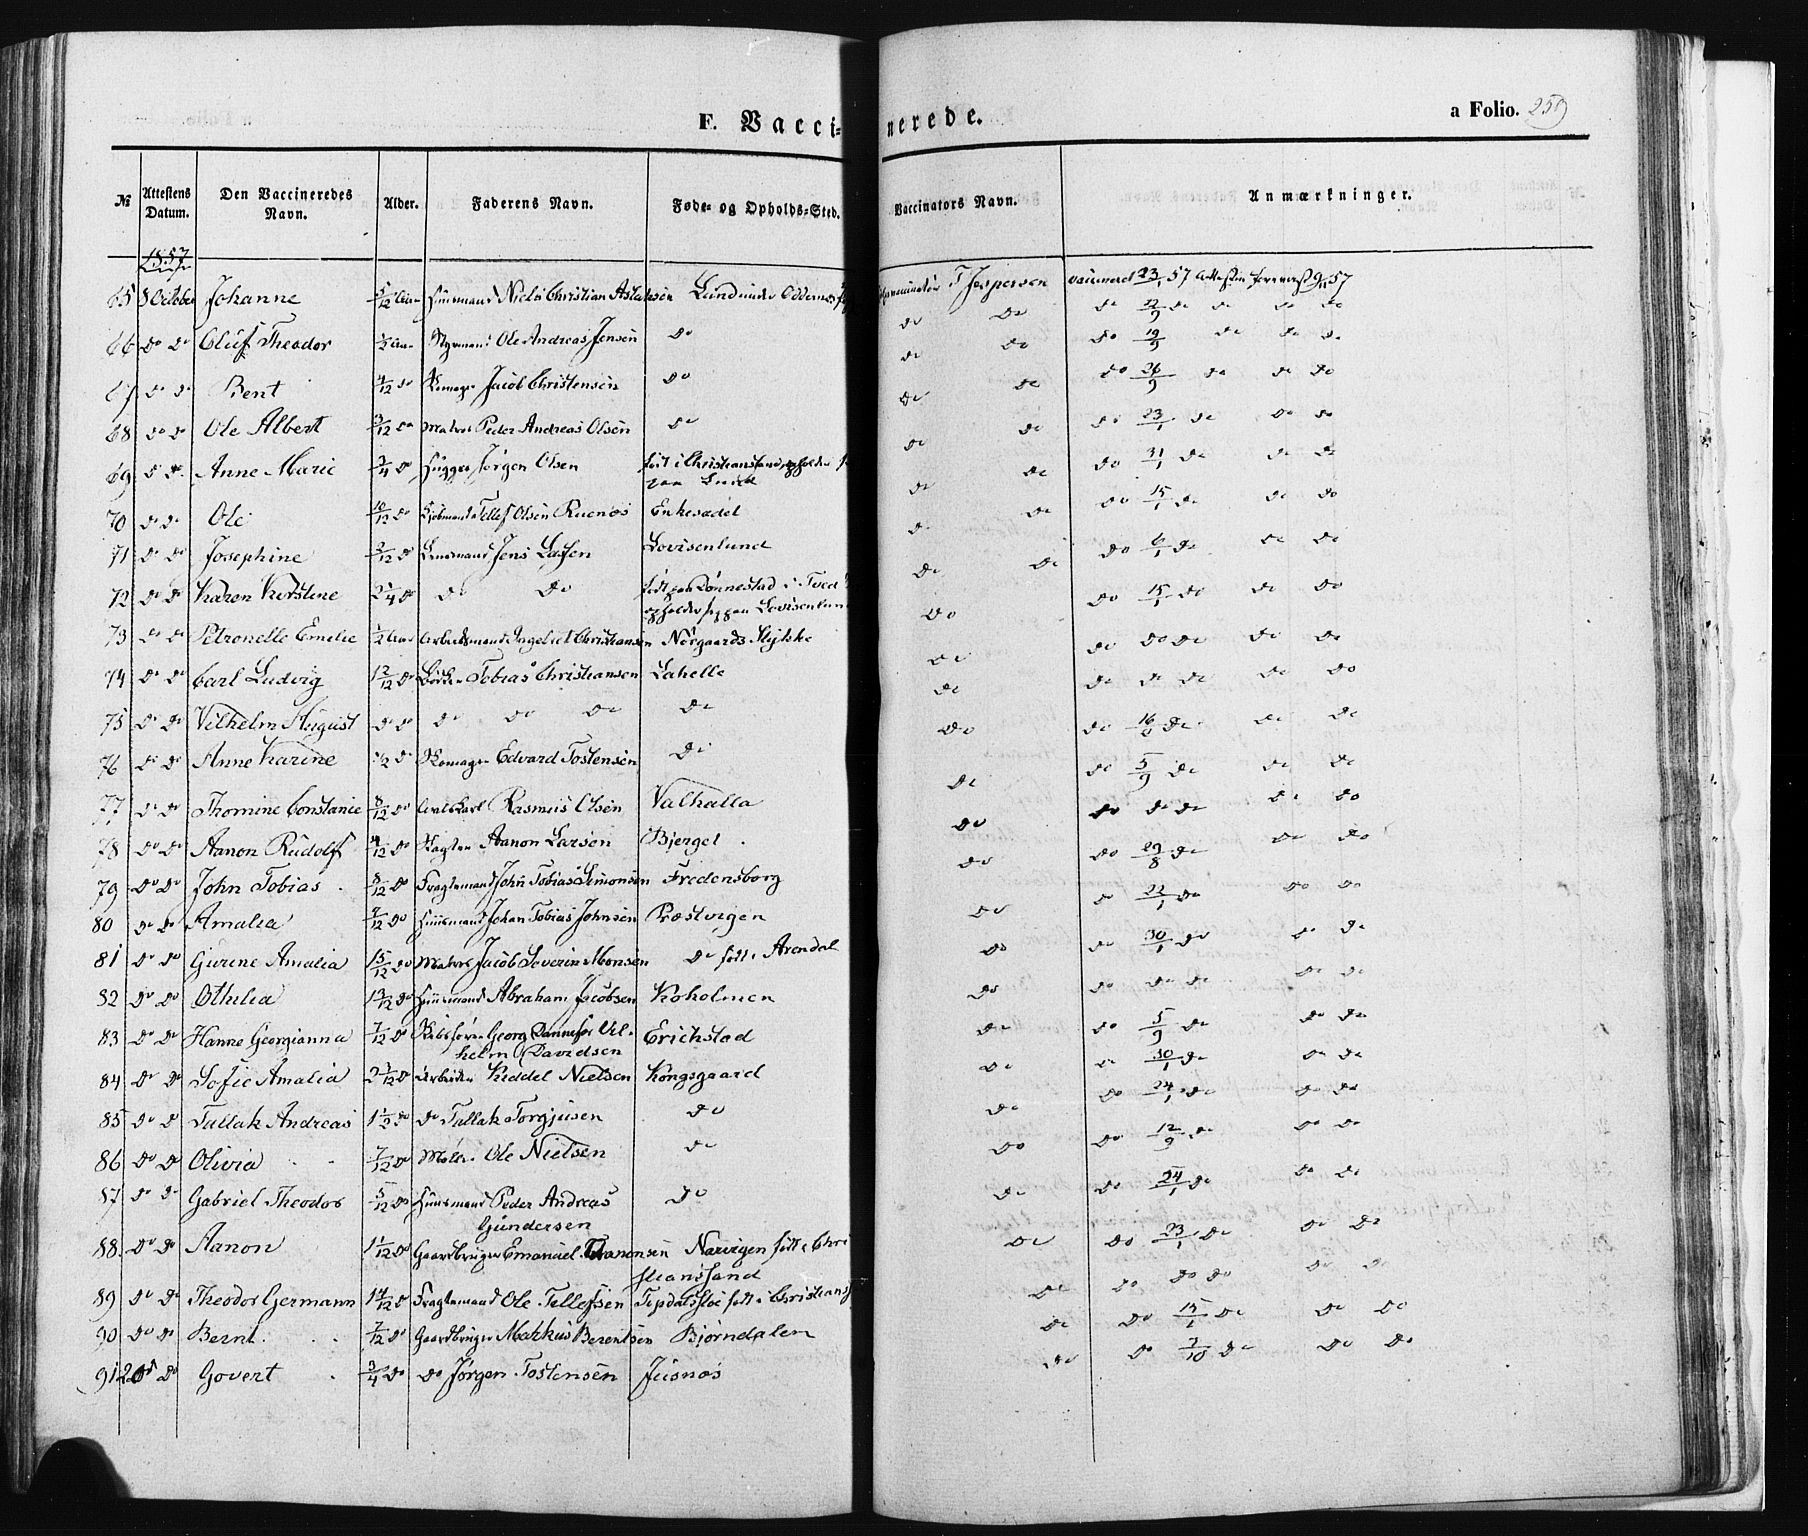 F. Vaccinerede.
a Folio. 259
№ Attestens Datum. Den Vaccineredes Navn. Alder. Faderens Navn. Føde- og Opholds-Sted. Vaccinators Navn. Anmærkninger.
1857
65 8 October Johanne 5/12 Huusmand Niels Christian Aslaksen Lund under Oddernes T Jespersen 23/1 57 57
66 do do Oluf Theodor 1/2 Styrmand Ole Andreas Jensen do do do do 22/9 do do do do
67 do do Bent 4/12 do Skomager Jacob Christensen do do do do 19/9 do do do
68 do do Ole Albert 3/12 do Matros Peder Andreas Olsen do do do do 26/9 do do do
69 do do Anne Marie 3/4 do Jørgen Olsen født i Christianssand opholder do do do 23/1 do do do
paa Lund
70 do do Ole 10/12 do Tellef Olsen Ruenæs Enkesædet do do do 31/1 do do do
71 do do Josephine 3/12 do Lensmand Jens Lassen Lovisenlund do do do 15/1 do do do
72 do do Karen Kirstine 2 1/4 do do do født paa Rønnestad i Tved do do do 6/1 do do do
opholder sig paa Lovisenlund
73 do do Petronelle Emelie 1/2 Arbeidsmand Christiansen Nørgaards do do 15/1 do do do
74 do do Carl Ludvig 1 2/12 do Tobias Christiansen Lahelle do do do do do do
75 do do Vilhelm August do do do do do do do do do do do do
76 do do Anne Karine do Skomager Edvard Tostensen do do do 16/6 do do do
77 do do Thomine Constanie 8/12 do Rasmus Olsen Valhalla do do 5/9 do do do
78 do do Aanon Rudolf 4/12 do Aanon Larsen Bjerget do do do do do do
79 do do John Tobias 8/12 do Fragtemand John Tobias Simonsen Fredensborg do do 29/8 do do do
80 do do Amalia 9/12 do Huusmand Johan Tobias Johnsen Præstvigen do do 22/1 do do do
81 do do Gurine Amalia 15/12 do Matros Jacob Severin Monsen do født i Arendal do do 30/1 do do do
82 do do Othilia 1 3/12 do Huusmand Abraham Jacobsen Koholmen do do do do do do
83 do do Hanne Georgianna 7/12 do Skibsfører Georg Dannefos Vil- Erichstad do do 5/9 do do do
helm Davidsen
84 do do Sofie Amalia 2 1/12 do Arbeider Keddel Nielsen Kongsgaard do do 30/1 do do do
85 do do Tallak Andreas 1 1/2 do do Tallak Torgjusen do do do 24/1 do do do
86 do do Olivia 7/12 do Ole Nielsen do do do 12/9 do do do
87 do do Gabriel Theodor 5/12 do Huusmand Peder Andreas do do do 24/1 do do do
Gundersen
88 do do Aanon 1 1/12 do Gaardbruger Emanuel Aanonsen Narvigen født i Chri do do 23/1 do do do
stianssand
89 do do Theodor Germann 1 4/12 do Fragtemand Ole Tellefsen Topdalsfloe født i Christians do do do do do do
90 do do Bernt 7/12 do Gaardbruger Markus Berentsen Bjørndalen do do 15/1 do do do
91 20 do Govert 3/4 do do Jørgen Tostensen Justnæs do do 7/10 do do do